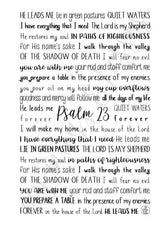 HE LEADS ME in green pastures QUIET WATERS
I have everything that I need The Lord is my Shepherd
He restores my soul IN PATHS OF RIGHTEOUSNESS
for His name's sake I walk through the valley
OF THE SHADOW OF DEATH I will fear no evil
you are with me your rod and staff comfort me
you prepare a table in the presence of my enemies
you pour oil on my head my cup overflows
goodness and mercy will follow me all the days of my life
He leads me Psalm 23 QUIET WATERS
forever forever
I will make my home in the house of the Lord
I have everything that I need He leads me
LIE IN GREEN PASTURES THE LORD IS MY SHEPHERD
He restores my soul in paths of righteousness
for His name's sake I walk through the valley
OF THE SHADOW OF DEATH I will fear no evil
YOU ARE WITH ME your rod and staff comfort me
YOU PREPARE A TABLE in the presence of my enemies
FOREVER in the house of the Lord HE LEADS ME